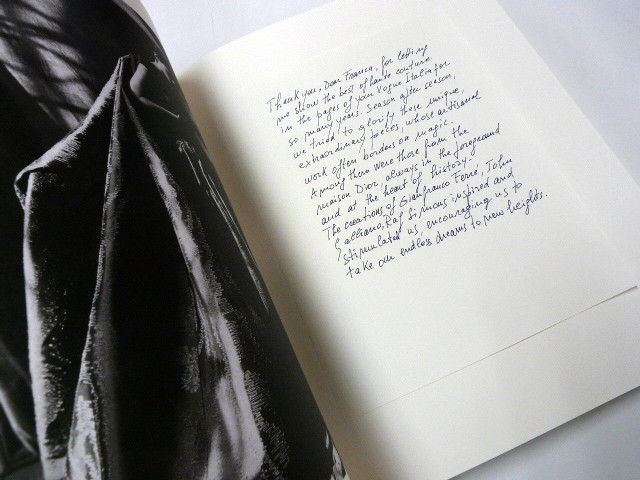 Thank you, Dear Franca, for letting
me show the best of haute couture
in the pages of your Vogue Italia for
so many years. Season after season,
we tried to glorify these unique,
extraordinary pieces, whose artisanal
work often borders on magic.
Among them were those from the
maison Dior, always in the foreground
and at the heart of history.
The creations of Gianfranco Ferré, John
Galliano, Raf Simons inspired and
stimulated us, encouraging us to
take our endless dreams to new heights.